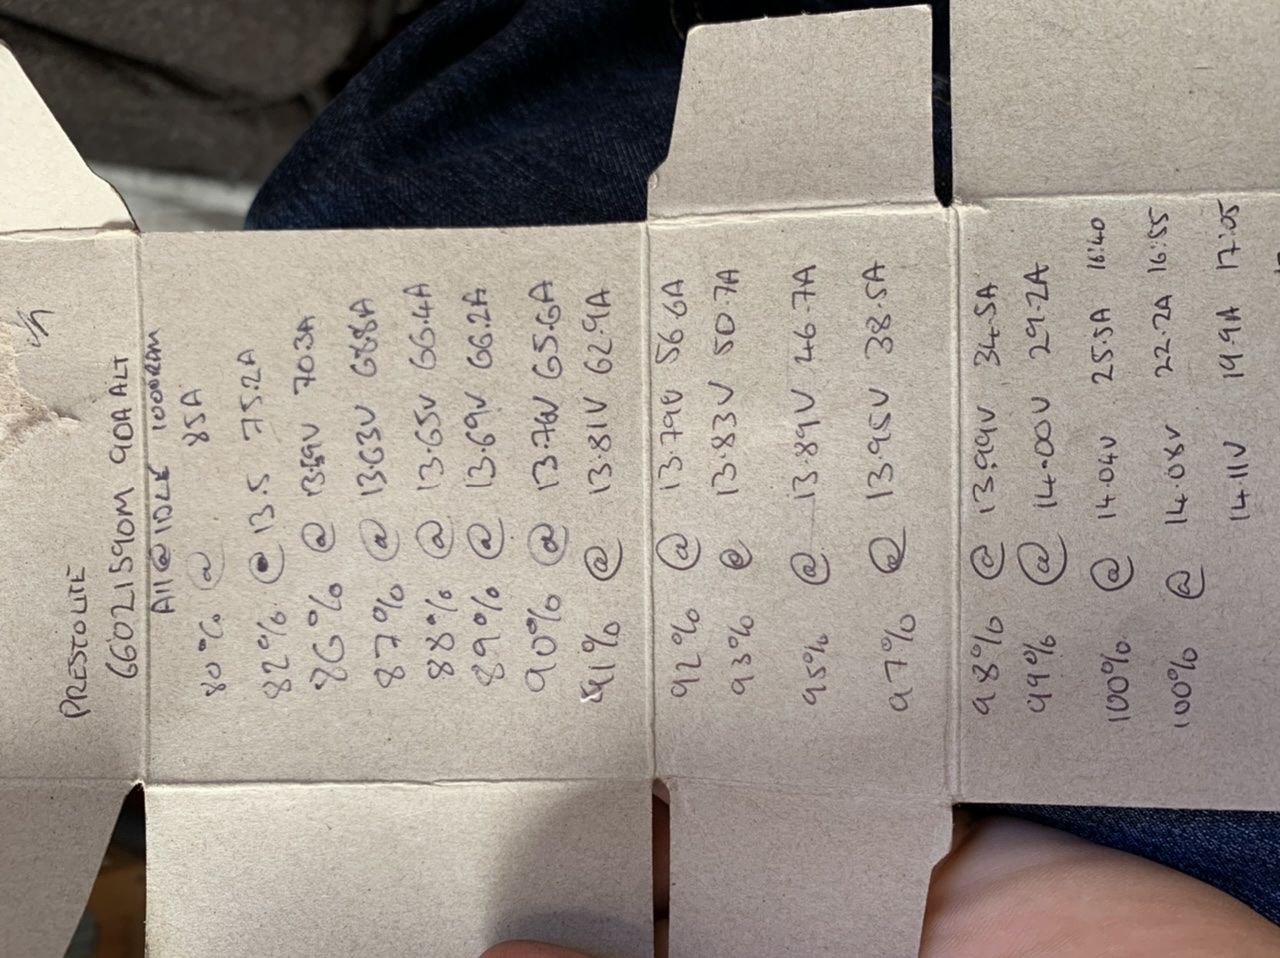 PRESTOLITE
66021590M 90A ALT
All @ IDLE 1000RPM
80% @ 85A
82% @ 13.5 75.2A
86% @ 13.59V 70.3A
87% @ 13.63V 68.8A
88% @ 13.65V 66.4A
89% @ 13.69V 66.2A
90% @ 13.76V 65.6A
91% @ 13.81V 62.9A
92% @ 13.79V 56.6A
93% @ 13.83V 50.7A
95% @ 13.89V 46.7A
97% @ 13.95V 38.5A
98% @ 13.99V 34.5A
99% @ 14.00V 29.2A
100% @ 14.04V 25.5A 16:40
100% @ 14.08V 22.2A 16:55
14.11V 19.9A 17:05